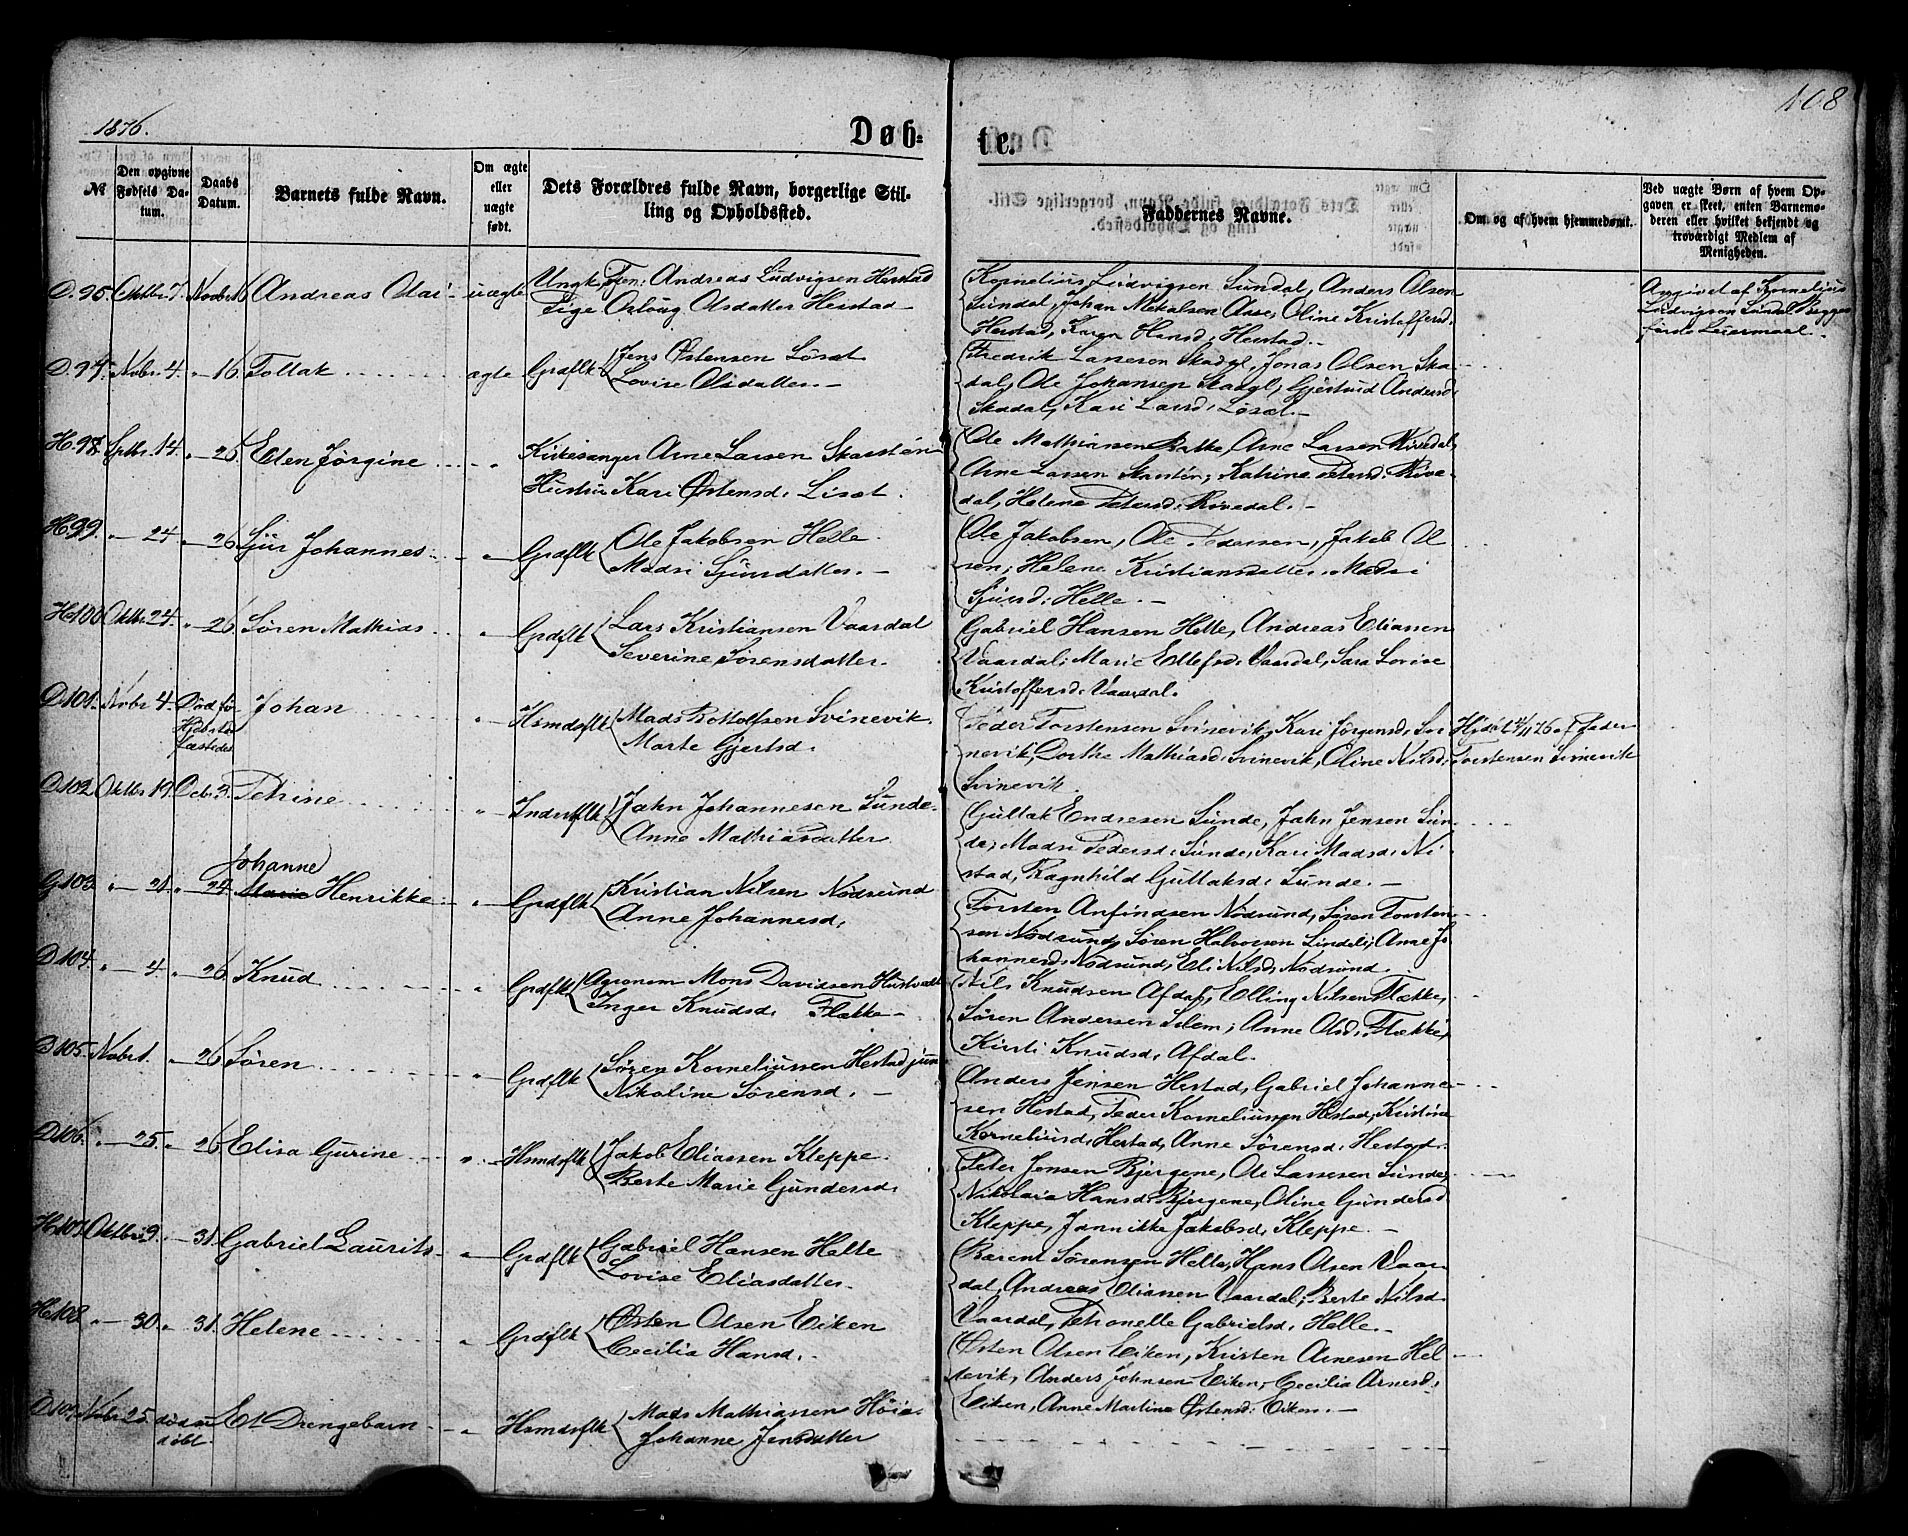 1876.
108
Døb-
te.
№
Den opgivne Fødsels Datum.
Daabs Datum.
Barnets fulde Navn.
Om ægte eller uægte født.
Dets Forældres fulde Navn, borgerlige Stilling og Opholdssted.
Faddernes Navne.
Om og af hvem hjemmedøbt.
Ved uægte Børn af hvem Opgaven er skeet, enten Barnemoderen eller hvilket bekjendt og troværdigt Medlem af Menigheden.
Oktbr. 7. Novbr 16 Andreas Olai uægte Ungk. Andreas Ludvigsen Herstad
Pige Oslaug Olsdatter Herstad
Kornelius Ludvigsen Sundal, Anders Olsen
Sundal, Johan Mikalsen Aase, Oline Kristoffersd.
Herstad, Karen Hansd. Herstad.
Opgivet af Kornelius
Ludvigsen Sundal. Begges
første Leiermaal.
D.97. Nobr. 4. " 16. Tollak ægte Grdflk Jens Østensen Løset
Lovise Olsdatter.
Fredrik Larsen Skadal, Jonas Olsen Ska-
dal, Ole Johansen Skadal, Gjertrud Andersd.
Skadal, Kari Larsd. Løset.
H.98. Sptbr. 14. " 26. Elen Jørgine " Kirkesanger Arne Larsen Skarstén
Hustru Kari Østensd. Løset.
Ole Mathiassen Bakke, Arne Larsen Rivedal,
Arne Larsen Skarstén, Katrine Petersd. Rive-
dal, Helene Petersd. Rivedal.
H.99. " 24 " 26 Sjur Johannes " Grdflk Ole Jakobsen Helle
Madsi Sjursdatter.
Ole Jakobsen, Ole Pedersen, Jakob Ol-
sen, Helene Kristiansdatter, Madsi
Sjursd. Helle.
H.100. Oktbr. 24. " 26. Søren Mathias " Grdflk Lars Kristiansen Vaardal
Severine Sørensdatter.
Gabriel Hansen Helle, Andreas Eliassen
Vaardal, Marie Ellefsd. Vaardal, Sara Lovise
Kristoffersd. Vaardal.
D.101. Nobr. 4. Død før
Johan " Hsmdsflk Mads Rottolfsen Svinevik.
Marte Gjertsd.
Peder Torstensen Svinevik, Kari Jørgensd. Svi-
nevik, Dorthe Mathiasd. Svinevik, Oline Nilsd.
Svinevik.
Hjdøbt 4/11 76 af Peder
Torstensen Svinevik
D.102. Oktbr. 19. Dcbr. 3. Petrine " Inderstflk Jahn Johannesen Sunde
Anne Mathiasdatter
Gullak Endresen Sunde, Jahn Jensen Sun-
de, Madsi Pedersd. Sunde, Kari Madsd. Ni-
stad, Ragnhild Gullaksd. Sunde.
Johanne
G.103. " 21. " 24 Marie Henrikke " Grdflk Kristian Nilsen Nødsund
Anne Johannesd.
Torsten Anfindsen Nødsund, Søren Torsten-
sen Nødsund, Søren Halvorsen Lindeli, Anne Jo-
hannesd. Nødsund, Eli Nilsd. Nødsund.
D.104. " 4. " 26. Knud " Grdflk Agronom Mons Davidsen
Inger Knudsd. Flække
Nils Knudsen Afdal, Elling Nilsen Flække,
Søren Andersen Solem, Anne Olsd. Flække,
Kirsti Knudsd. Afdal.
D.105. Nobr. 1. " 26 Søren " Grdflk Søren Korneliussen Hestad jun.
Nikoline Sørensd.
Anders Jensen Hestad, Gabriel Johanne-
sen Hestad, Peder Korneliussen Hestad, Kristine
Korneliusd. Hestad, Anne Sørensd. Hestad.
D.106. " 25. " 26 Elisa Gurine " Hsmdsflk Jakob Eliassen Kleppe
Berte Marie Gundersd.
Peter Jensen Bjergene, Ole Larsen Sunde,
Nikolaia Hansd. Bjergene, Oline Gundersd.
Kleppe, Jannikke Jakobsd. Kleppe.
H.107. Oktbr. 9. " 31. Gabriel Laurits " Grdflk Gabriel Hansen Helle
Lovise Eliasdatter.
Barent Sørensen Helle, Hans Olsen Vaar-
dal, Andreas Eliassen Vaardal, Berte Nilsd.
Vaardal, Petronelle Gabrielsd. Helle.
H.108. " 30. " 31. Helene " Grdflk Østen Olsen Eiken
Cecilia Hansd.
Østen Olsen Eiken, Kristen Arnesen Hel-
levik, Anders Johnsen Eiken, Cecilia Arnesd.
Eiken, Anne Martine Østensd. Eiken.
D.109. Nobr. 25. død u-
døbt. Et Drengebarn " Hsmdsflk Mads Mathiassen Høie
Johanne Jensdatter